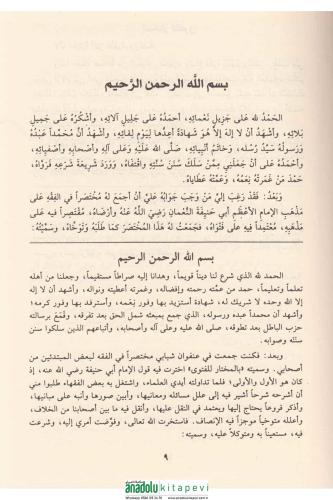 بسم الله الرحمن الرّحيم
الحَمْدُ لله عَلى جَزِيلِ نَعْمَائِهِ، أحمَدُهُ عَلى جَلِيلِ آلائِهِ، وأشْكُرُهُ عَلى جَمِيلِ
بَلائِهِ، وأشهَدُ أنْ لا إلهَ إلاَّ هُوَ شَهادَةً أعِدُّها لِيَوْمِ لِقائِهِ، وأشهَدُ أنَّ مُحمَّداً عَبْدُهُ
وَرَسولُهُ سَيِّدُ رُسلِه، وخَاتَمُ أنْبِيائِهِ، صَلَّى اللَّهُ عَلَيْهِ وَعَلى آلِهِ وأصحَابِهِ وأصفِيائِهِ،
وأحمَدُهُ عَلى أنْ جَعَلَني مِمَّنْ سَلَكَ سَنَنَ سُنَّتِهِ واقْتَفَاهُ، وَوَرَدَ شَرِيعَةَ شَرْعِهِ فَرَوَاهُ،
حَمْدَ مَنْ غَمَرَتْهُ نِعَمُهُ، وَعَمَّتْهُ عَطاياهُ.
وَبَعدُ: فَقَدْ رَغِبَ إليَّ مَنْ وَجَبَ جَوَابُهُ عَلَيَّ أنْ أجمَعَ لَهُ مُخْتَصَراً في الفِقْهِ عَلى
مَذْهَبِ الإمامِ الأعْظَمِ أبي حَنِيفَةَ النُّعْمَانِ رَضِيَ اللَّهُ عَنْهُ وأرْضَاهُ، مُقْتَصِراً فيه عَلى
مَذْهَبِهِ، مُعْتَمِداً فِيهِ عَلى فَتْوَاهُ، فجَمَعْتُ لَهُ هَذَا المُخْتَصَرَ كَمَا طَلَبَهُ وتَوَخَّاهُ، وَسَمَّيْتُهُ:
بسم الله الرحمن الرحيم
الحمد لله الذي شرع لنا ديناً قويماً، وهدانا إليه صراطاً مستقيماً، وجعلنا من أهله
تعلماً وتعليماً، حمد من عمَّته رحمته وإفضاله، وغمرته أعطيته ونواله، وأشهد أن لا إله
إلا الله وحده لا شريك له، شهادة أستزيد بها وفور نِعَمه، وأسترفد بها وفور كرمه؛
وأشهد أن محمداً عبده ورسوله، الذي جمع بمبعثه شمل الحق بعد تفرقه، وقمع بدعوته
حزب الباطل بعد تطوقه، صلى الله عليه وعلى آله وأصحابه، وأتباعهم الذين سلكوا سنن
سنَّته وصوابه.
وبعد: فكنت جمعت في عنفوان شبابي مختصراً في الفقه لبعض المبتدئين من
أصحابي. وسميته «بالمختار للفتوى» اخترت فيه قول الإمام أبي حنيفة رضي الله عنه، إذ
كان هو الأول والأولى؛ فلما تداولته أيدي العلماء، واشتغل به بعض الفقهاء طلبوا مني
أن أشرحه شرحاً أشير فيه إلى علل مسائله ومعانيها، وأبين صورها وأنبه على مبانيها،
وأذكر فروعاً يحتاج إليها ويعتمد في النقل عليها، وأنقل فيه ما بين أصحابنا من الخلاف،
وأعلله متوخياً موجزاً فيه الإنصاف، فاستخرت الله تعالى، وفوّضت أمري إليه، وشرعت
فيه، مستعيناً به ومتوكلاً عليه، وسميته:
٩
anadolukitapevi